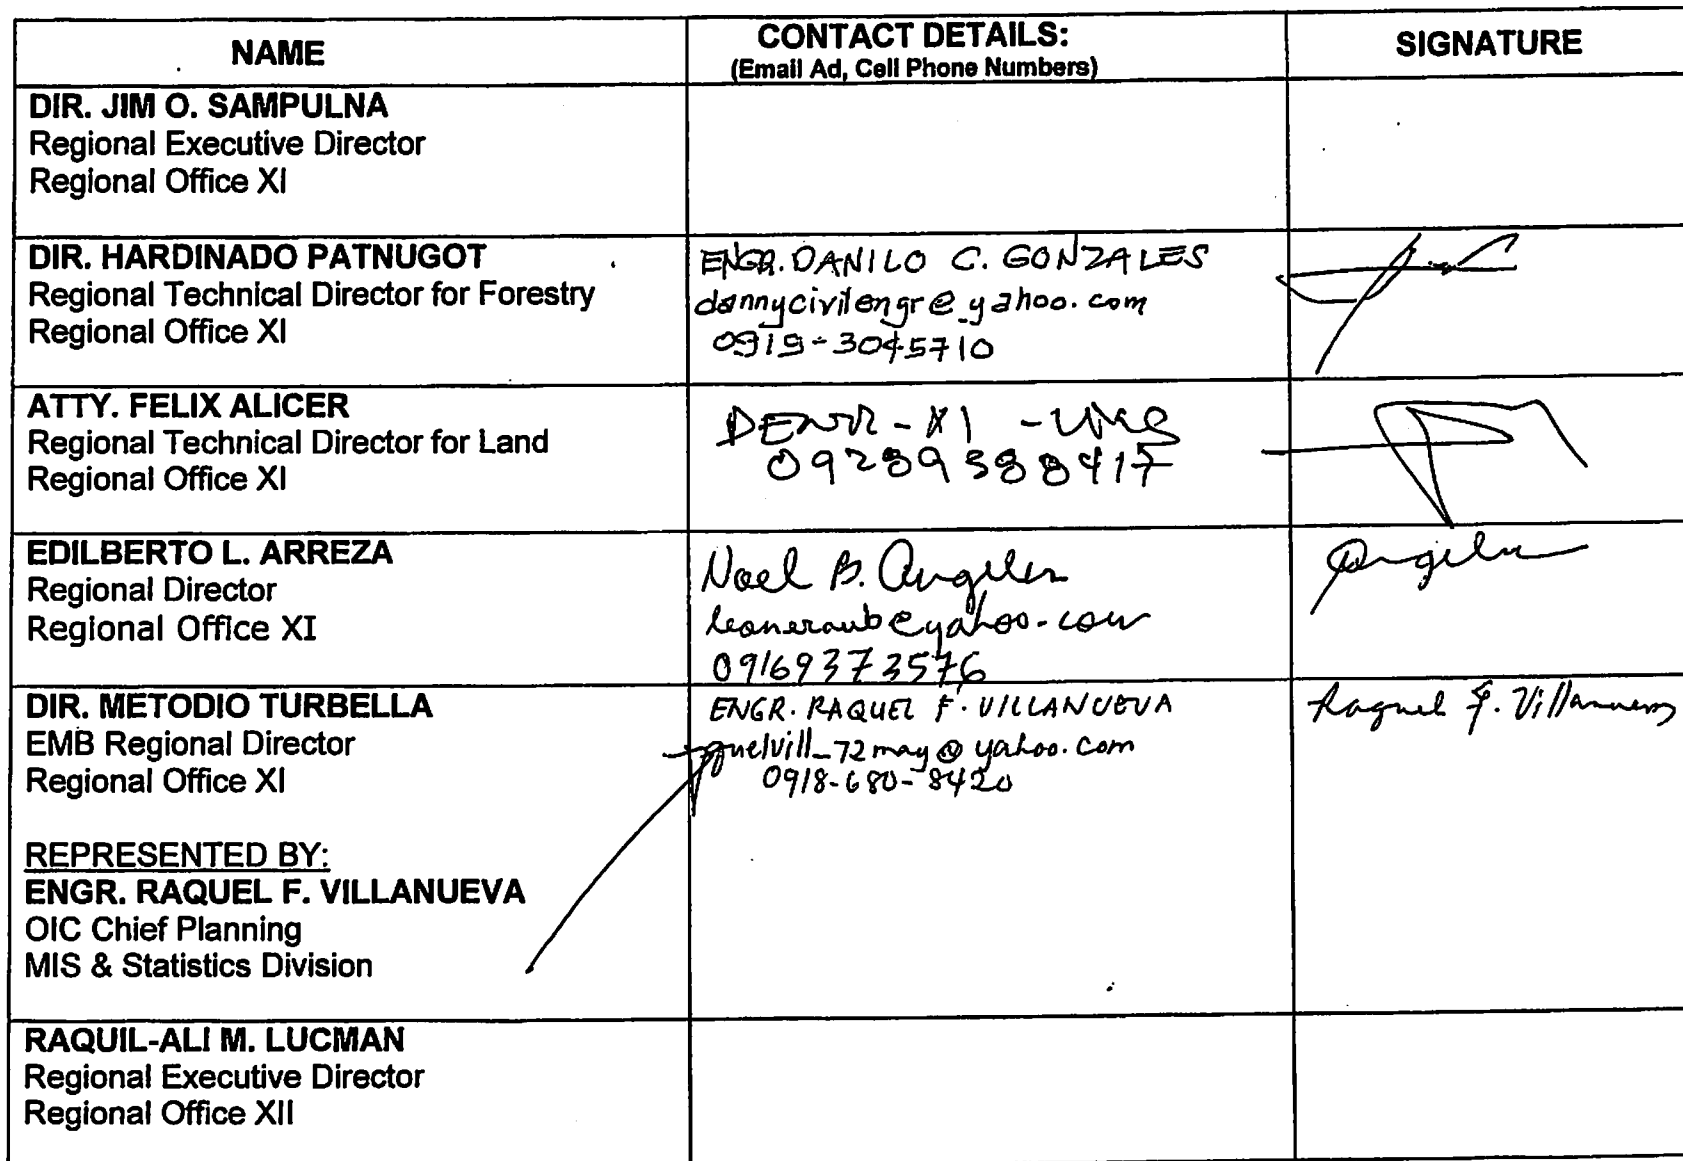 NAME
CONTACT DETAILS:
(Email Ad, Cell Phone Numbers)
SIGNATURE
DIR. JIM O. SAMPULNA
Regional Executive Director
Regional Office XI
DIR. HARDINADO PATNUGOT
Regional Technical Director for Forestry
Regional Office XI
ENGR. DANILO C. GONZALES
dannycivilengr@yahoo.com
0919-3045710
ATTY. FELIX ALICER
Regional Technical Director for Land
Regional Office XI
DENR-XI -LMS
09289388417
EDILBERTO L. ARREZA
Regional Director
Regional Office XI
Noel B. Angeles
09169373576
DIR. METODIO TURBELLA
EMB Regional Director
Regional Office XI
REPRESENTED BY:
ENGR. RAQUEL F. VILLANUEVA
OIC Chief Planning
MIS & Statistics Division
ENGR. RAQUEL F. VILLANUEVA
quelvill_72may@yahoo.com
0918-680-8420
Raquel F. Villanueva
RAQUIL-ALI M. LUCMAN
Regional Executive Director
Regional Office XII